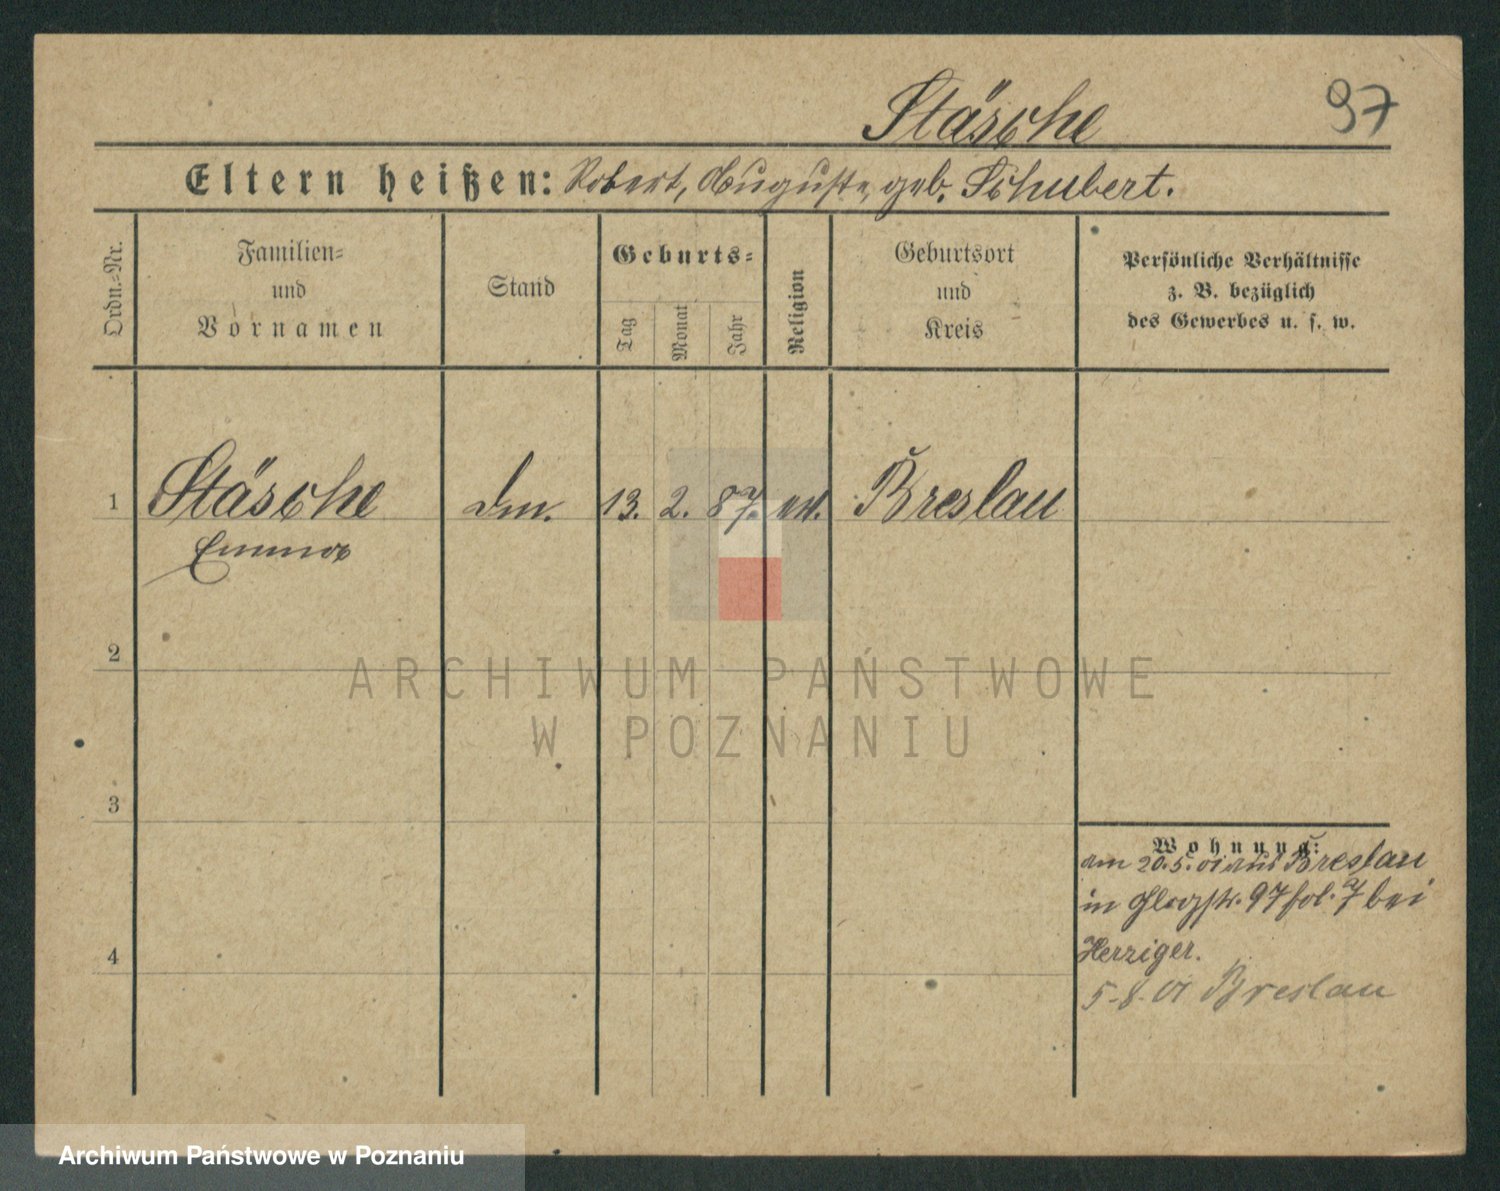 Stäsche 97
Eltern heißen: Robert, Auguste, geb. Schubert.
Ordn.-Nr.
Familien-
und
Vornamen
Stand
Geburts-
Tag
Monat
Jahr
Religion
Geburtsort
und
Kreis
Persönliche Verhältnisse
z. B. bezüglich
des Gewerbes u. s. w.
1 Stäsche 13. 2. 87. ev. Breslau
Emma
2
ARCHIWUM PAŃSTWOWE
W POZNANIU
3
Wohnung:
am 20.5.01 aus Breslau
in Glogstr. 97 fol. 7 bei
4
Herziger.
5-8-01 Breslau
Archiwum Państwowe w Poznaniu